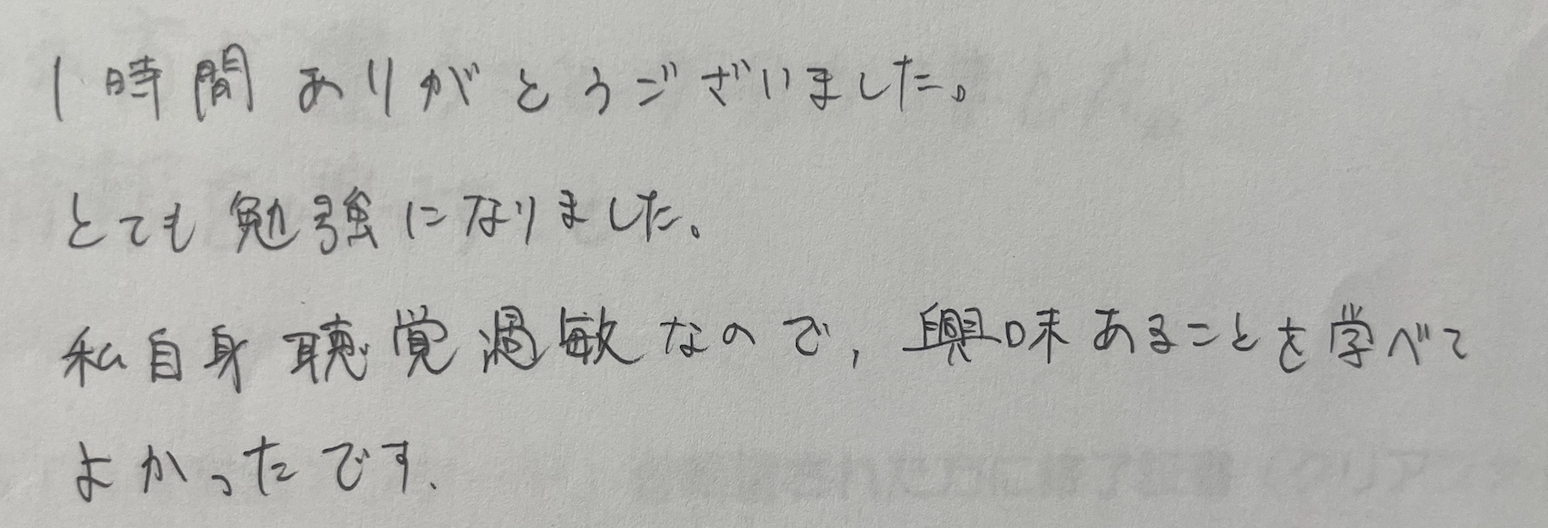 1時間ありがとうございました。
とても勉強になりました。
私自身聴覚過敏なので、興味あることを学べて
よかったです.